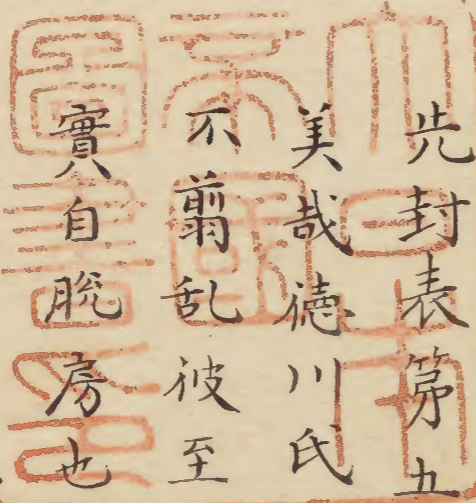 先封表第五
美哉徳川氏
不翦乱彼至
實自脱房也